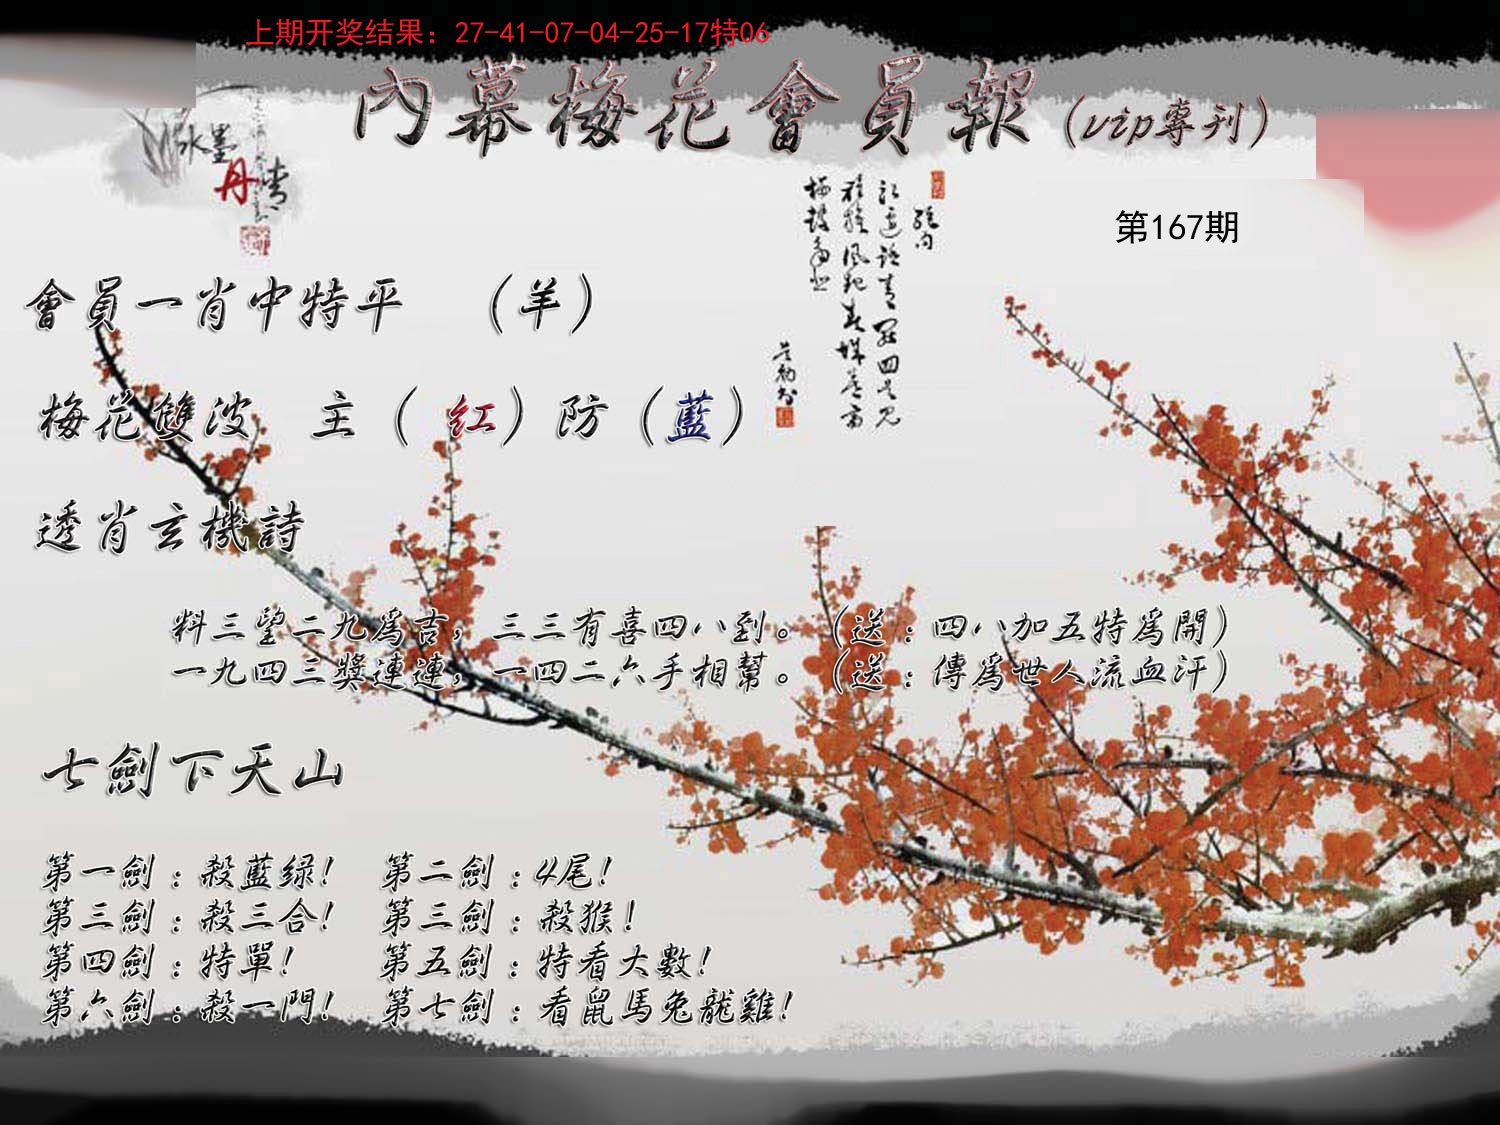 上期开奖结果：27-41-07-04-25-17特06
內幕梅花會員報（vip專刊）
水墨
丹青
第167期
會員一肖中特平　（羊）
梅花雙波　主（ 紅）防（藍）
透肖玄機詩
料三望二九爲吉，三三有喜四八到。（送：四八加五特爲開）
一九四三獎連連，一四二六手相幫。（送：傳爲世人流血汗）
七劍下天山
第一劍：殺藍绿！　第二劍：4尾！
第三劍：殺三合！　第三劍：殺猴！
第四劍：特單！　第五劍：特看大數！
第六劍：殺一門！　第七劍：看鼠馬兔龍雞！